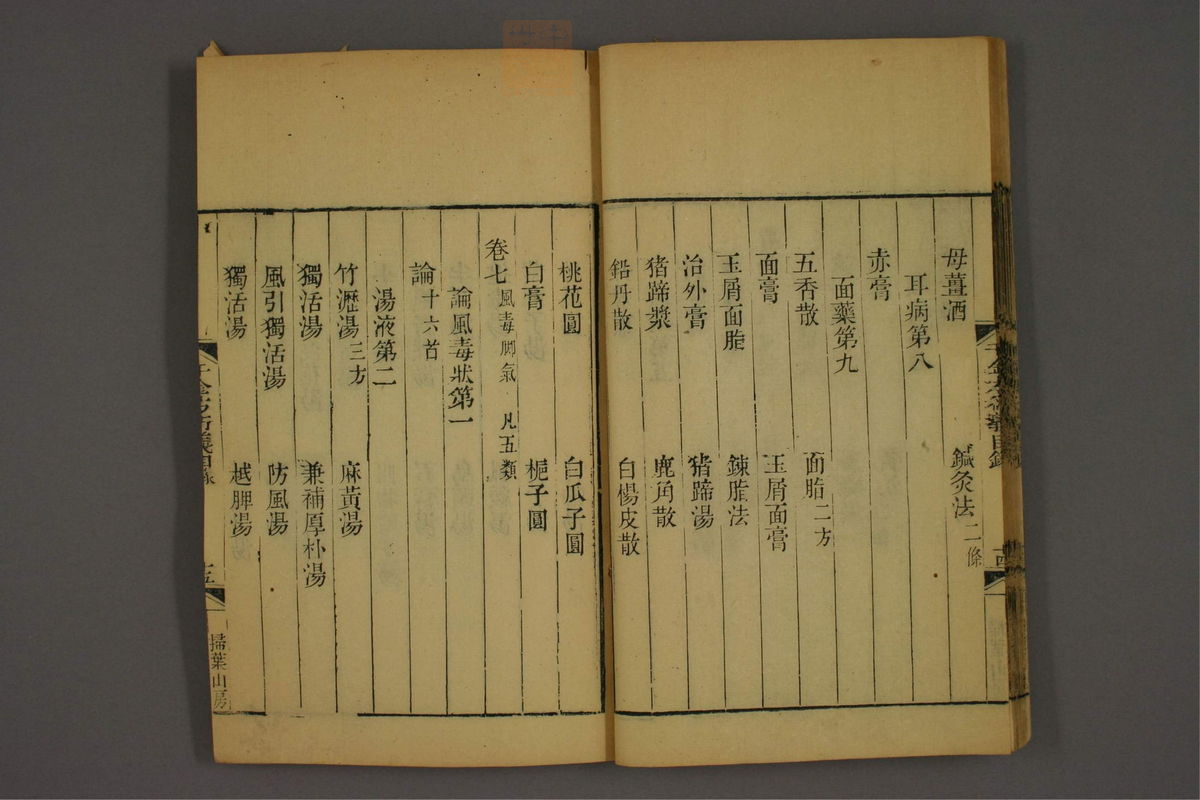 母薑酒 鍼灸法二條
耳病第八
赤膏
面藥第九
五香散 面脂二方
面膏 玉屑面膏
玉屑面脂 錬脂法
治外膏 猪蹄湯
猪蹄漿 鹿角散
鉛丹散 白楊皮散
桃花圓 白瓜子圓
白膏 梔子圓
卷七風毒脚氣 凡五類
論風毒狀第一
論十六首
湯液第二
竹瀝湯三方 麻黃湯
獨活湯 兼補厚朴湯
風引獨活湯 防風湯
獨活湯 越脾湯
千金方衍義目錄
十五
掃葉山房